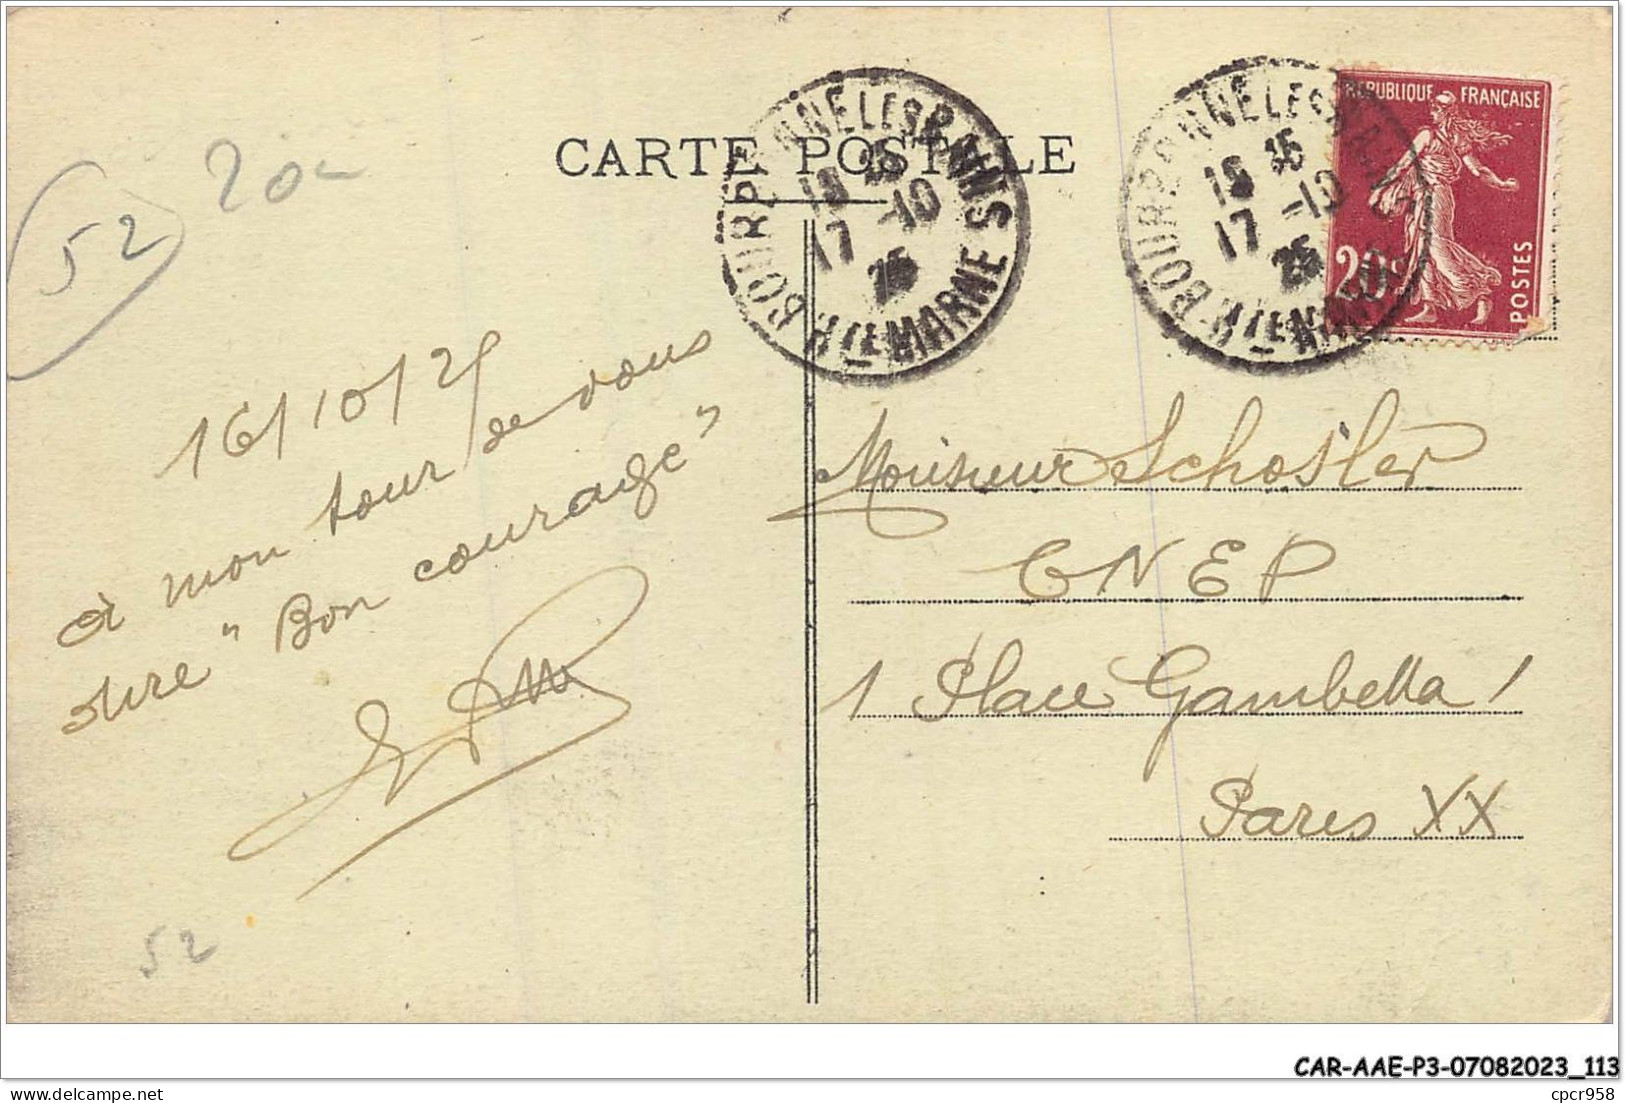 CARTE POSTALE
BOURBONNE LES BAINS
18 35
17 -10
25
Hte MARNE
BOURBONNE LES BAINS
18 35
17 -10
25
Hte MARNE
REPUBLIQUE FRANÇAISE
20c
POSTES
52
20
16/10/25
à mon tour de vous
dire "Bon courage"
Monsieur Schosler
CNEP
1 Place Gambetta 1
Paris XX
52
CAR-AAE-P3-07082023_113
cpcr958